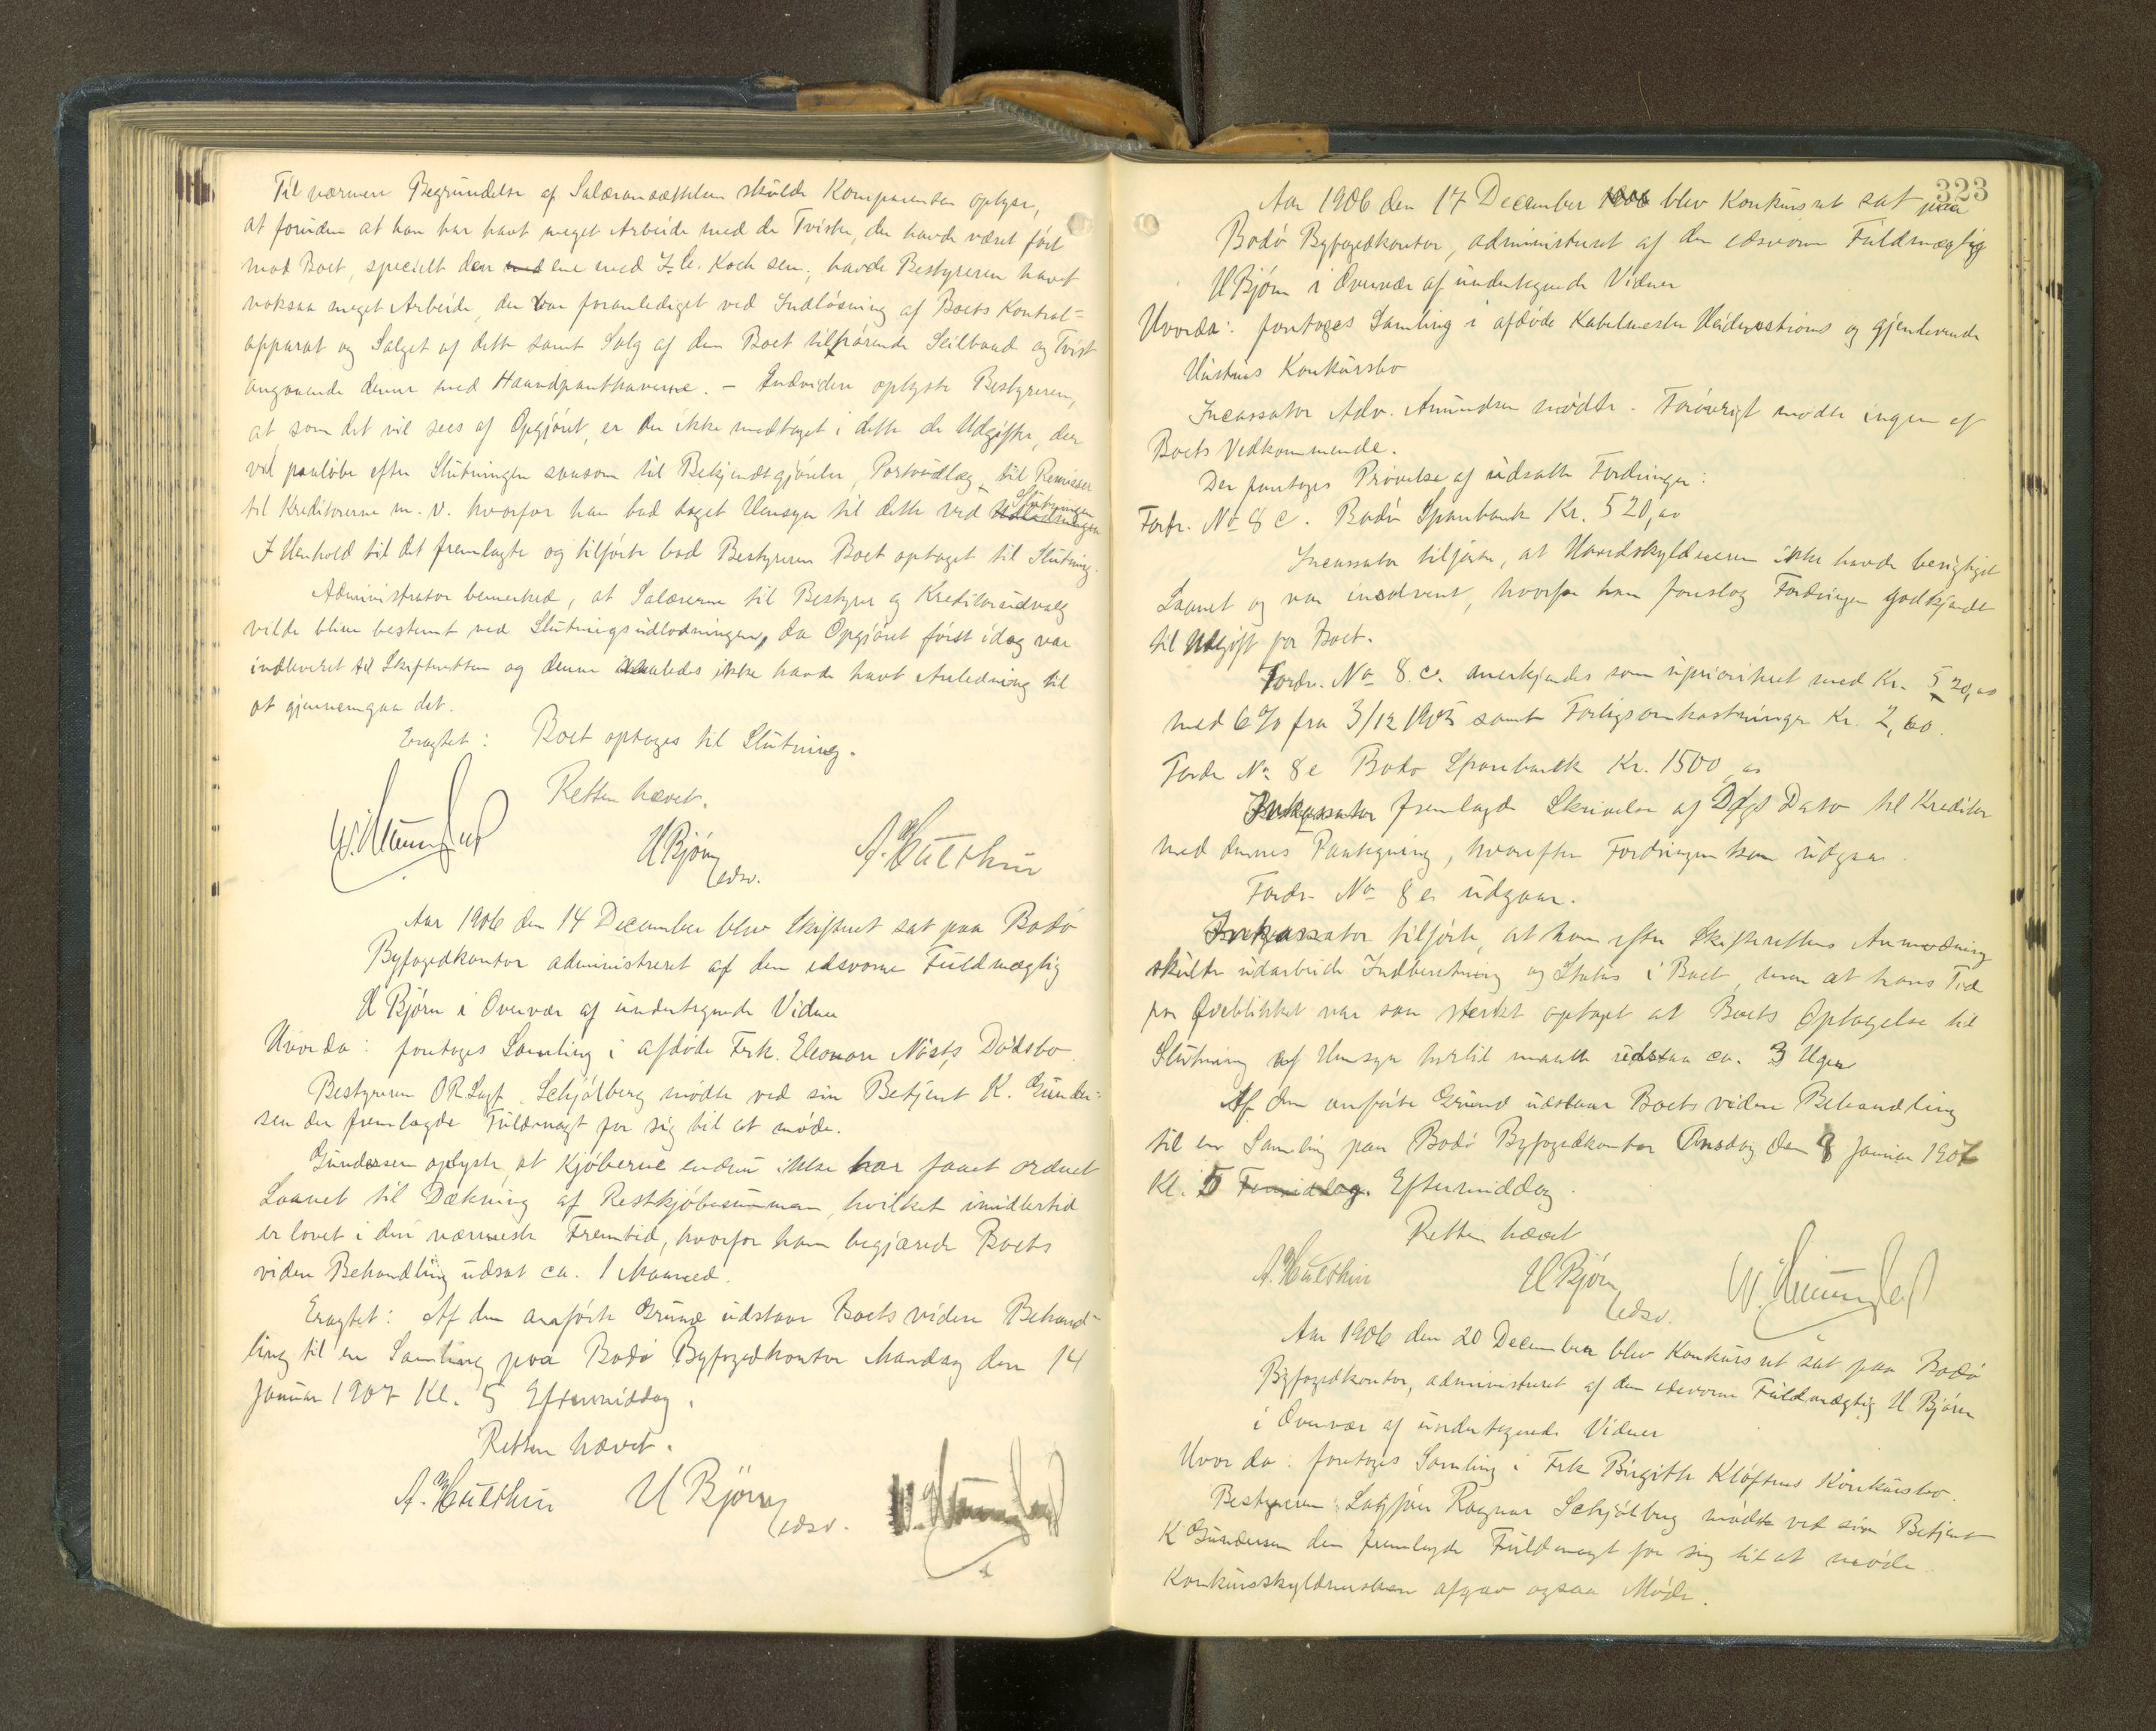 Til nærmere Begrundelse af Salæransættelsen skulde Komparenten oplyse,
at foruden at han har havt meget Arbeide med de Tvister, der havde været ført
mod Boet, specielt den med ene med J. C. Koch sen., havde Bestyreren havt
noksaa meget Arbeide, der var foranlediget ved Indløsning af Boets Kontrol-
apparat og Salget af dette samt Salg af den Boet tilhørende Seilbaad og Tvist
angaaende denne med Haandpanthaverne. – Endvidere oplyste Bestyreren,
at som det vil sees af Opgjøret, er der ikke medtaget i dette de Udgifter, der
vil paaløbe efter Slutningen saasom til Bekjendtgjørelser, Portoudlæg, til Remisser
til Kreditorerne m. v. hvorfor han bad taget Hensyn til dette ved Udlodningen Slutningen
I Henhold til det fremlagte og tilførte bad Bestyreren Boet optaget til Slutning.
Administrator bemerked, at Salærerne til Bestyrer og Kreditorudvalg
vilde blive bestemt ved Slutningsudlodningen, da Opgjøret først idag var
indleveret til Skifteretten og denne saaledes ikke havde havt Anledning til
at gjennemgaa det.
Eragtet: Boet optages til Slutning.
Retten hævet.
U Bjørn
edsv.
A. Hulthin
Aar 1906 den 14 December blev Skifteret sat paa Bodø
Byfogedkontor administreret af den edsvorne Fuldmægtig
U Bjørn i Overvær af undertegnede Vidner
Hvorda: foretoges Samling i afdøde Frk. Eleonore Nøsts Dødsbo
Bestyreren ORSagf. Schjølberg mødte ved sin Betjent K. Gunder-
sen der fremlagde Fuldmagt for sig til at møde.
Gundersen oplyste, at Kjøberne endnu ikke har faaet ordnet
Laanet til Dækning af Restkjøbesummen, hvilket imidlertid
er lovet i den nærmeste Fremtid, hvorfor han begjærede Boets
videre Behandling udsat ca. 1 Maaned.
Eragtet: Af den anførte Grund udstaar Boets videre Behand-
ling til en Samling paa Bodø Byfogedkontor Mandag den 14
Januar 1907 Kl. 5 Eftermiddag.
Retten hævet.
A. Hulthin U Bjørn
edsv.
323
Aar 1906 den 17 December 1906 blev Konkursret sat paa
Bodø Byfogedkontor, administreret af den edsvorne Fuldmægtig
U Bjørn i Overvær af undertegnede Vidner
Hvorda: foretoges Samling i afdøde Kabelmester Heiderstrøms og gjenlevende
Hustrus Konkursbo
Incassator Adv. Amundsen mødte. Forøvrigt mødte ingen af
Boets Vedkommende.
Der foretoges Prøvelse af udsatte Fordringer:
Fordr. No 8 c. Bodø Sparebank Kr. 520,00
Incassator tilførte, at Hovedskyldneren ikke havde berigtiget
Laanet og var insolvent, hvorfor han foreslog Fordringen godkjendt
til Udgift for Boet.
Fordr. No 8. c. anerkjendes som uprioriteret med Kr. 520,00
med 6% fra 3/12 1905 samt Forligsomkostninger Kr. 2,60.
Fordr No 8 e Bodø Sparebank Kr. 1500,00
Inkassator fremlagde Skrivelse af Dgs Dato til Kreditor
med dennes Paategning, hvorefter Fordringen kan udgaa.
Fordr. No 8 e. udgaar.
Inkassator tilførte, at han efter Skifterettens Anmodning
skulde udarbeide Indberetning og Status i Boet, men at hans Tid
for Øieblikket var saa sterkt optaget at Boets Optagelse til
Slutning af Hensyn hertil maatte udstaa ca. 3 Uger
Af den anførte Grund udstaar Boets videre Behandling
til en Samling paa Bodø Byfogedkontor Onsdag den 9 Januar 1907
Kl. 5 Formiddag. Eftermiddag.
Retten hævet
A. Hulthin U Bjørn
edsv.
Aar 1906 den 20 December blev Konkursret sat paa Bodø
Byfogedkontor, administreret af den edsvorne Fuldmægtig U Bjørn
i Overvær af undertegnede Vidner
Hvor da: foretoges Samling i Frk Birgitte Kløftens Konkursbo.
Bestyreren Sagfører Ragnar Schjølberg mødte ved sin Betjent
K Gundersen der fremlagde Fuldmagt for sig til at møde.
Konkursskyldnersken afgav ogsaa Møde.